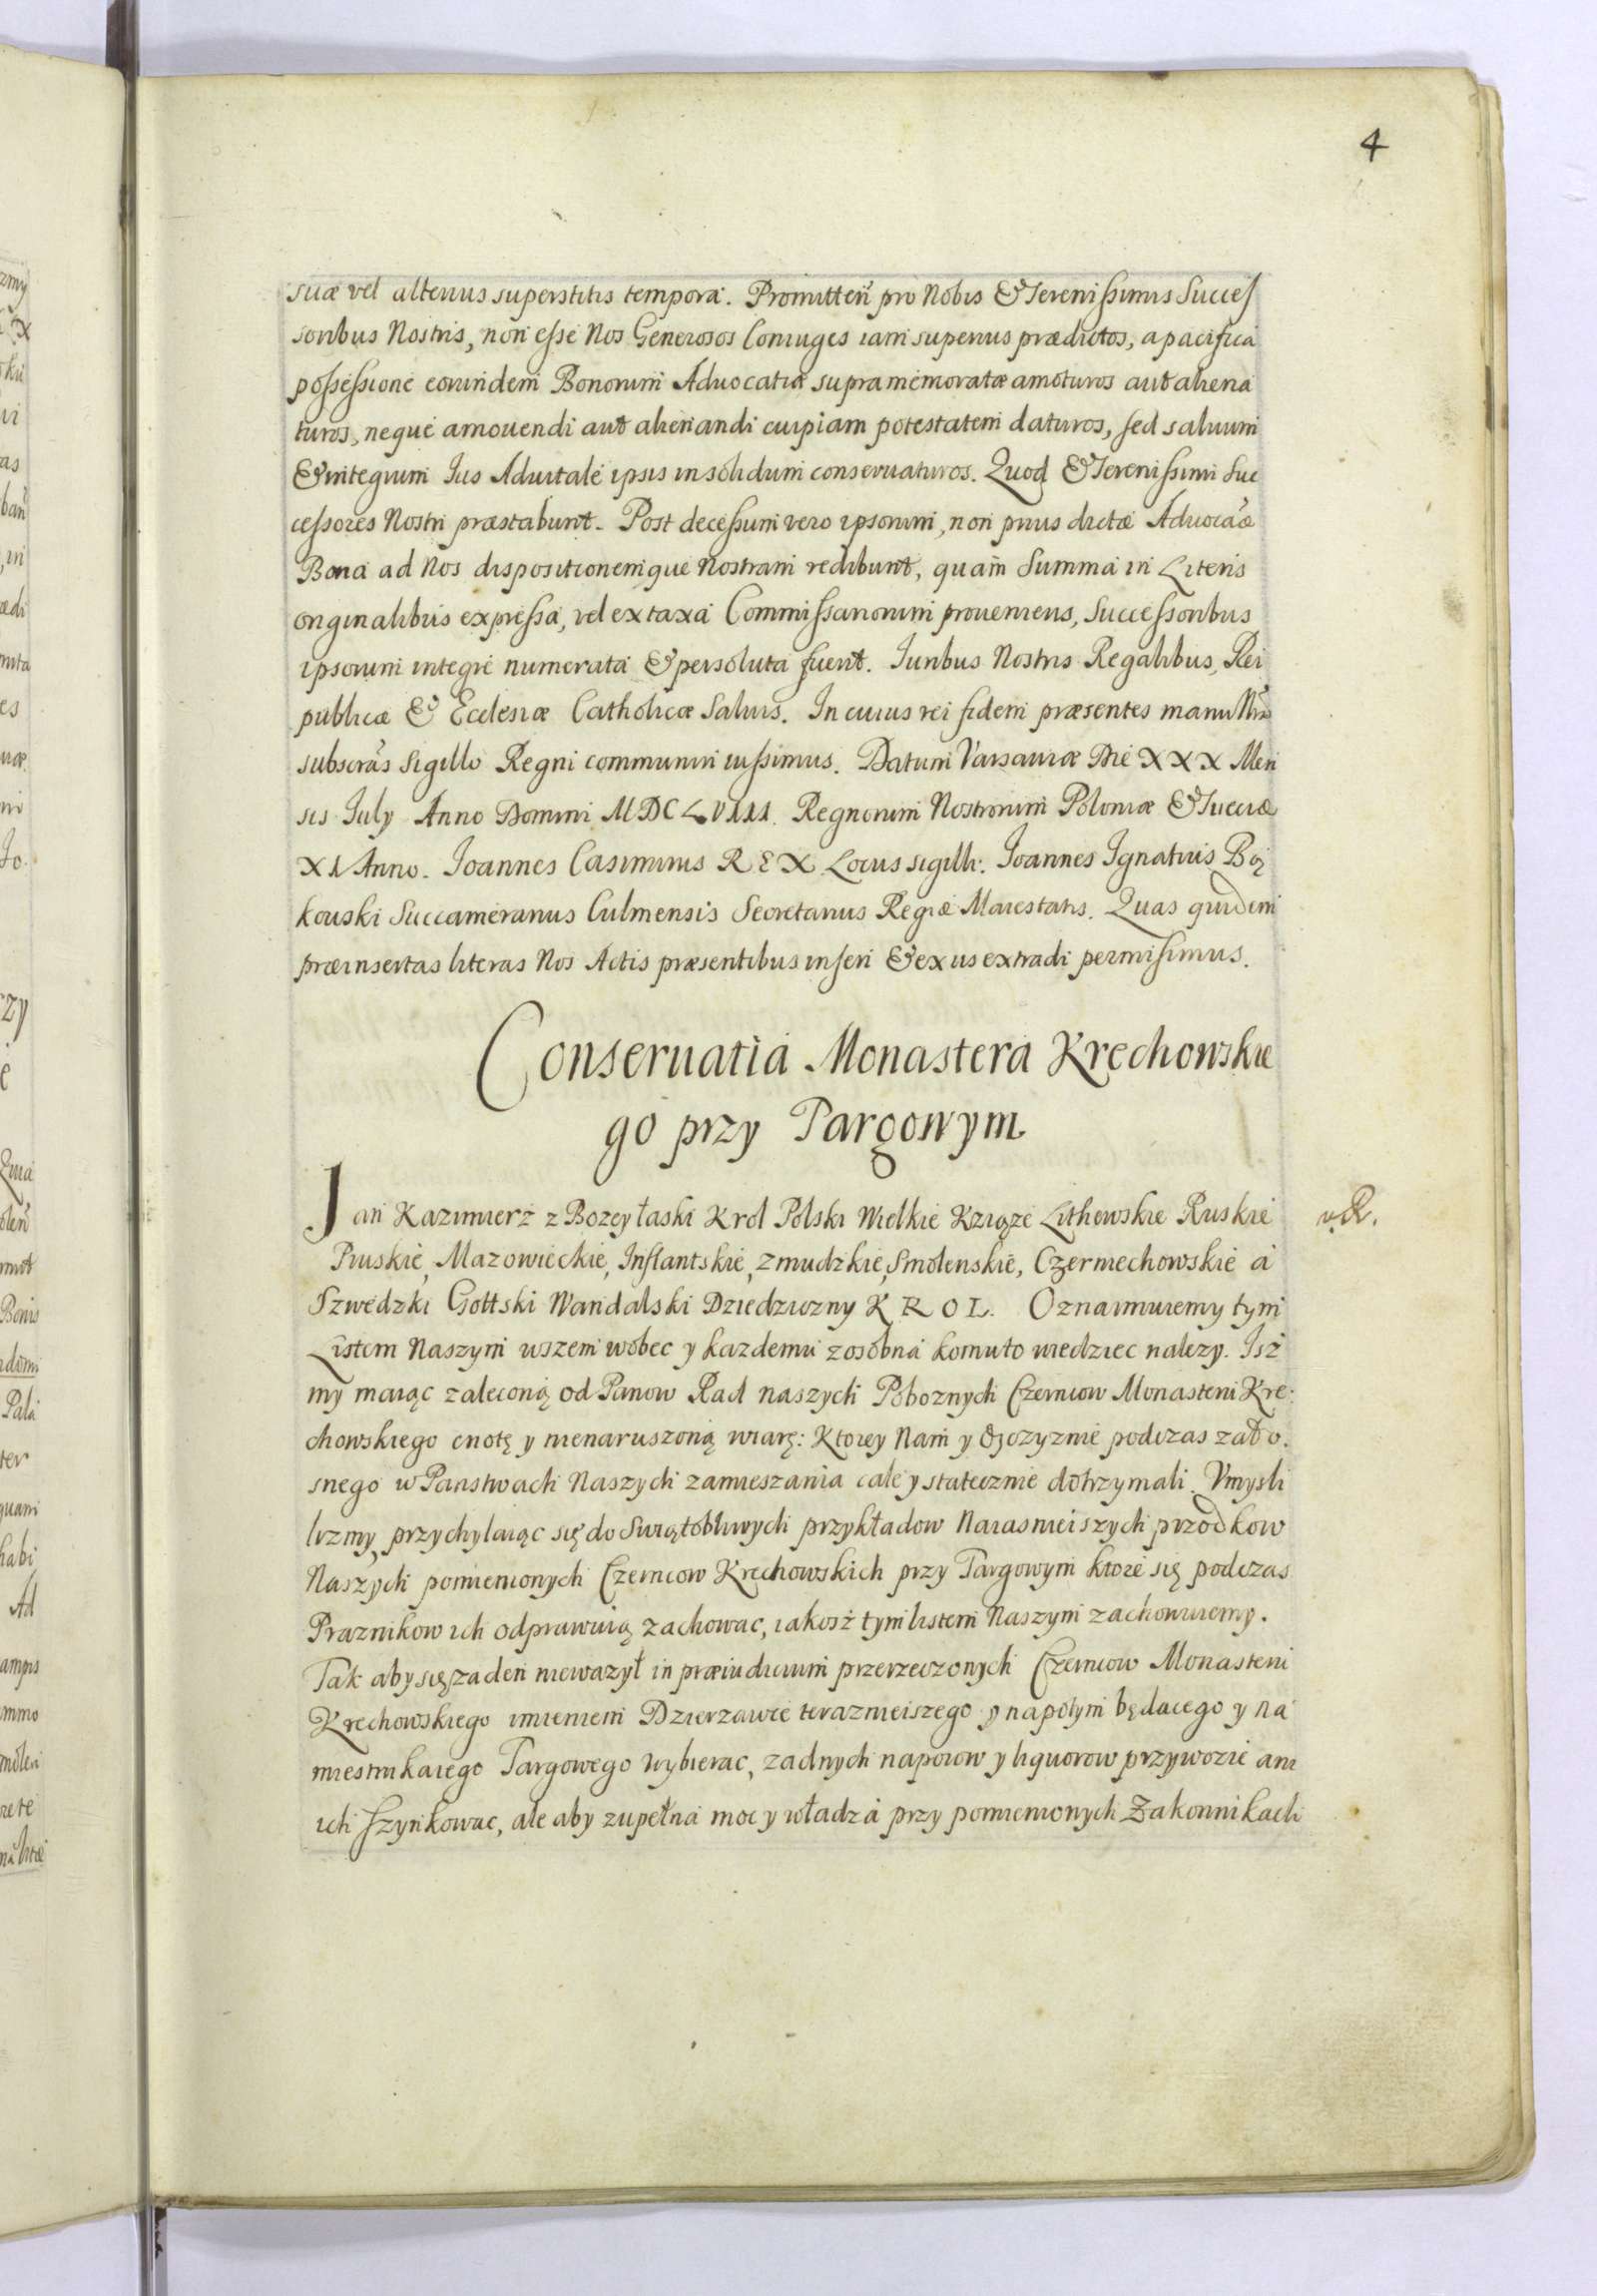 4
suæ vel alterius superstitis tempora. Promitteñ pro Nobis & Serenissimis Succes
soribus Nostris, non esse Nos Generosos Coniuges iam superius prædictos, a pacifica
possessione eorundem Bonorum Aduocatiæ supramemoratæ amoturos aut aliena
turos, neque amouendi aut alienandi cuipiam potestatem daturos, sed saluum
& integrum Ius Aduitale ipsis in solidum conseruaturos. Quod & Serenissimi Suc
cessores Nostri præstabunt. Post decessum vero ipsorum, non prius dictæ Aduocãæ
Bona ad Nos dispositionemque Nostram redibunt, quam Summa in Literis
originalibus expressa, vel ex taxa Commissariorum proueniens, Successoribus
ipsorum integre numerata & persoluta fuerit. Iuribus Nostris Regalibus, Rei
publicæ & Ecclesiæ Catholicæ Saluis. In cuius rei fidem præsentes manu Nrã
subscrãs Sigillo Regni communiri iussimus. Datum Varsauiæ Die XXX Men
sis July Anno Domini MDCLVIII. Regnorum Nostrorum Poloniæ & Sueciæ
XI Anno. Ioannes Casimirus REX Locus sigilli. Ioannes Ignatius Bą
kouski Succamerarius Culmensis Secretarius Regiæ Maiestatis. Quas quidem
præinsertas literas Nos Actis præsentibus inseri & ex iis extradi permisimus.
Conseruatia Monastera Krechowskie
go przy Targowym
Jan Kazimierz z Bozey łaski Krol Polski Wielkie Xziąze Lithewskie Ruskie
v. R.
Pruskie, Mazowieckie, Inflantskie, Zmudzkie, Smolenskie, Czerniechowskie a
Szwedzki Gottski Wandalski Dziedziczny KROL. Oznaimuiemy tym
Listem Naszym wszem wobec y kazdemu zosobna komuto wiedziec nalezy. Isz
my maiąc zaleconą od Panow Rad naszych Poboznych Czerncow Monasteru Kre:
chowskiego cnotę y nienaruszoną wiarę: Ktorey Nam y Ojczyznie podczas zało.
snego w Panstwach Naszych zamieszania cale y statecznie dotrzymali. Vmysli
lizmy, przychylaiąc się do Swiątobliwych przykładow Naiasnieiszych przodkow
Naszych pomienionych Czerncow Kręchowskich przy Targowym ktore się podczas
Praznikow ich odprawuią zachowac, iakosz tym listem Naszym zachowuiemy.
Tak aby się zaden niewazył in præiudicium przerzeczonych Czerncow Monasteru
Krechowskiego imieniem Dzierzawce terazniejszego y napotym będącego y na
miestnikaiego Targowego wybierac, zadnych napoiow y liquorow przywozic ani
ich szynkowac, ale aby zupełna moc y władza przy pomienionych Zakonnikach